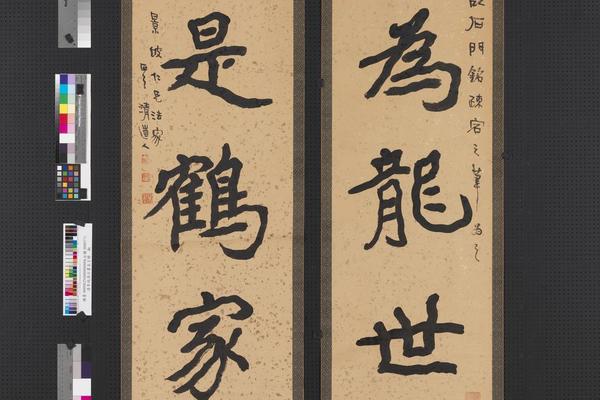 石門銘疎宕之筆為之
為龍世
是鶴家
景 仁兄法家
清道人